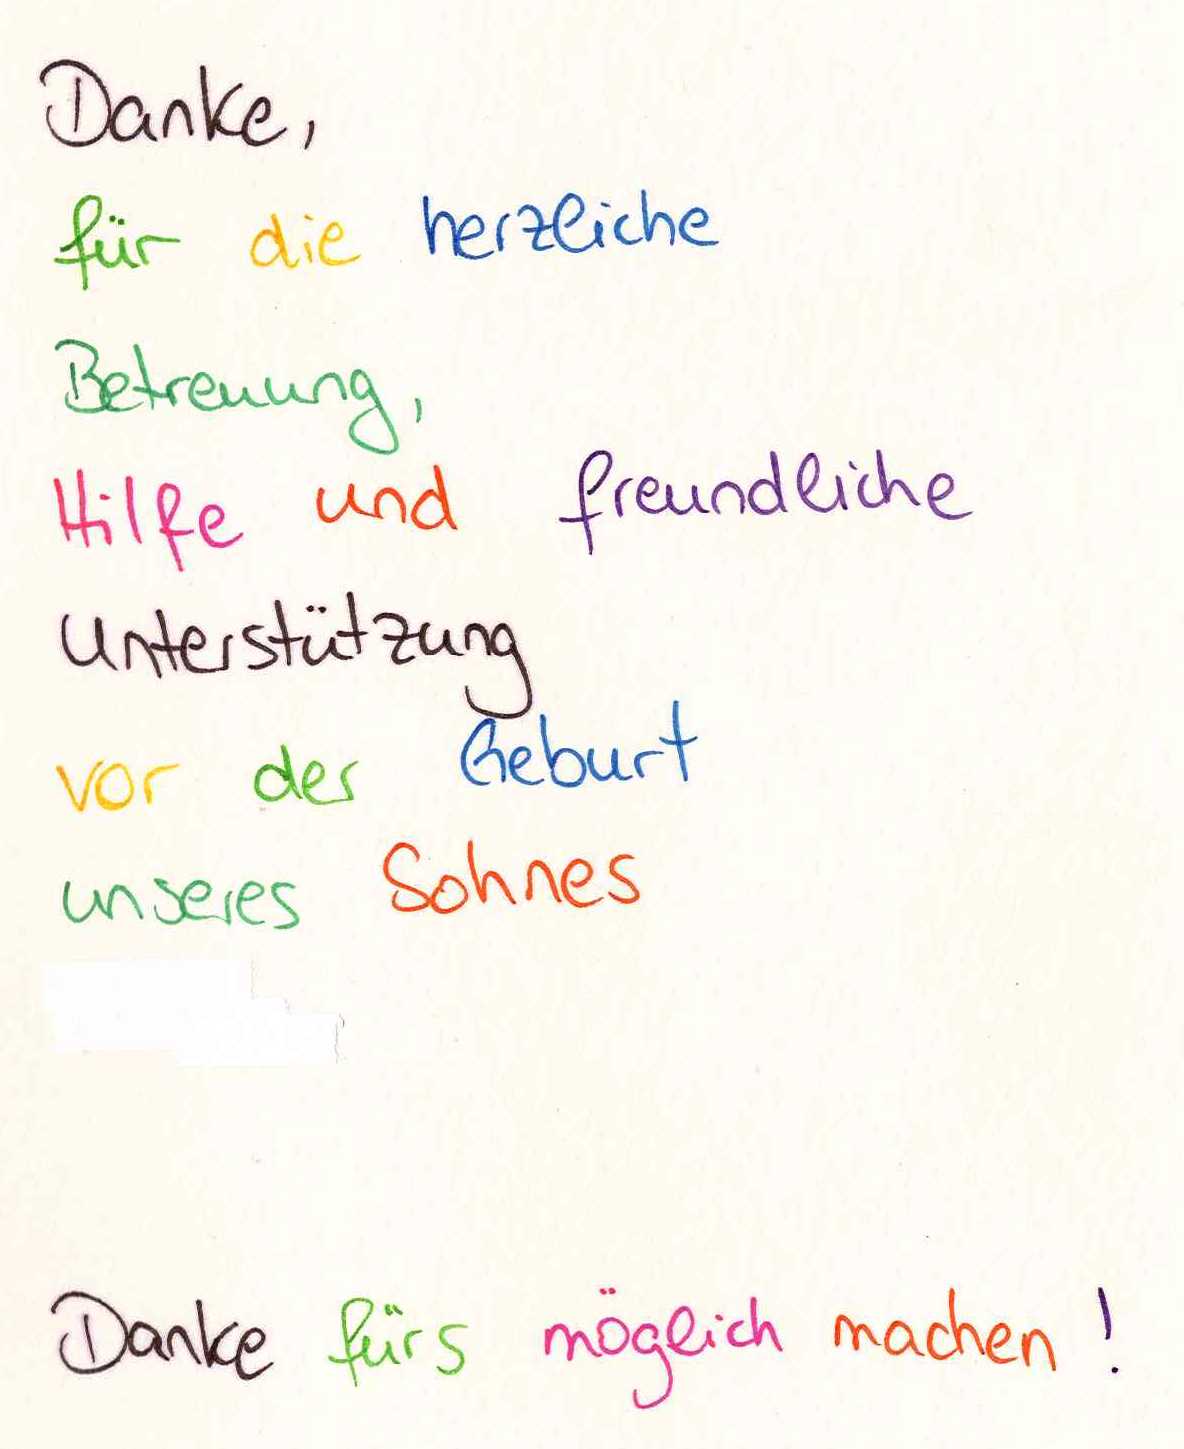 Danke,
für die herzliche
Betreuung,
Hilfe und freundliche
Unterstützung
vor der Geburt
unseres Sohnes
Danke fürs möglich machen!